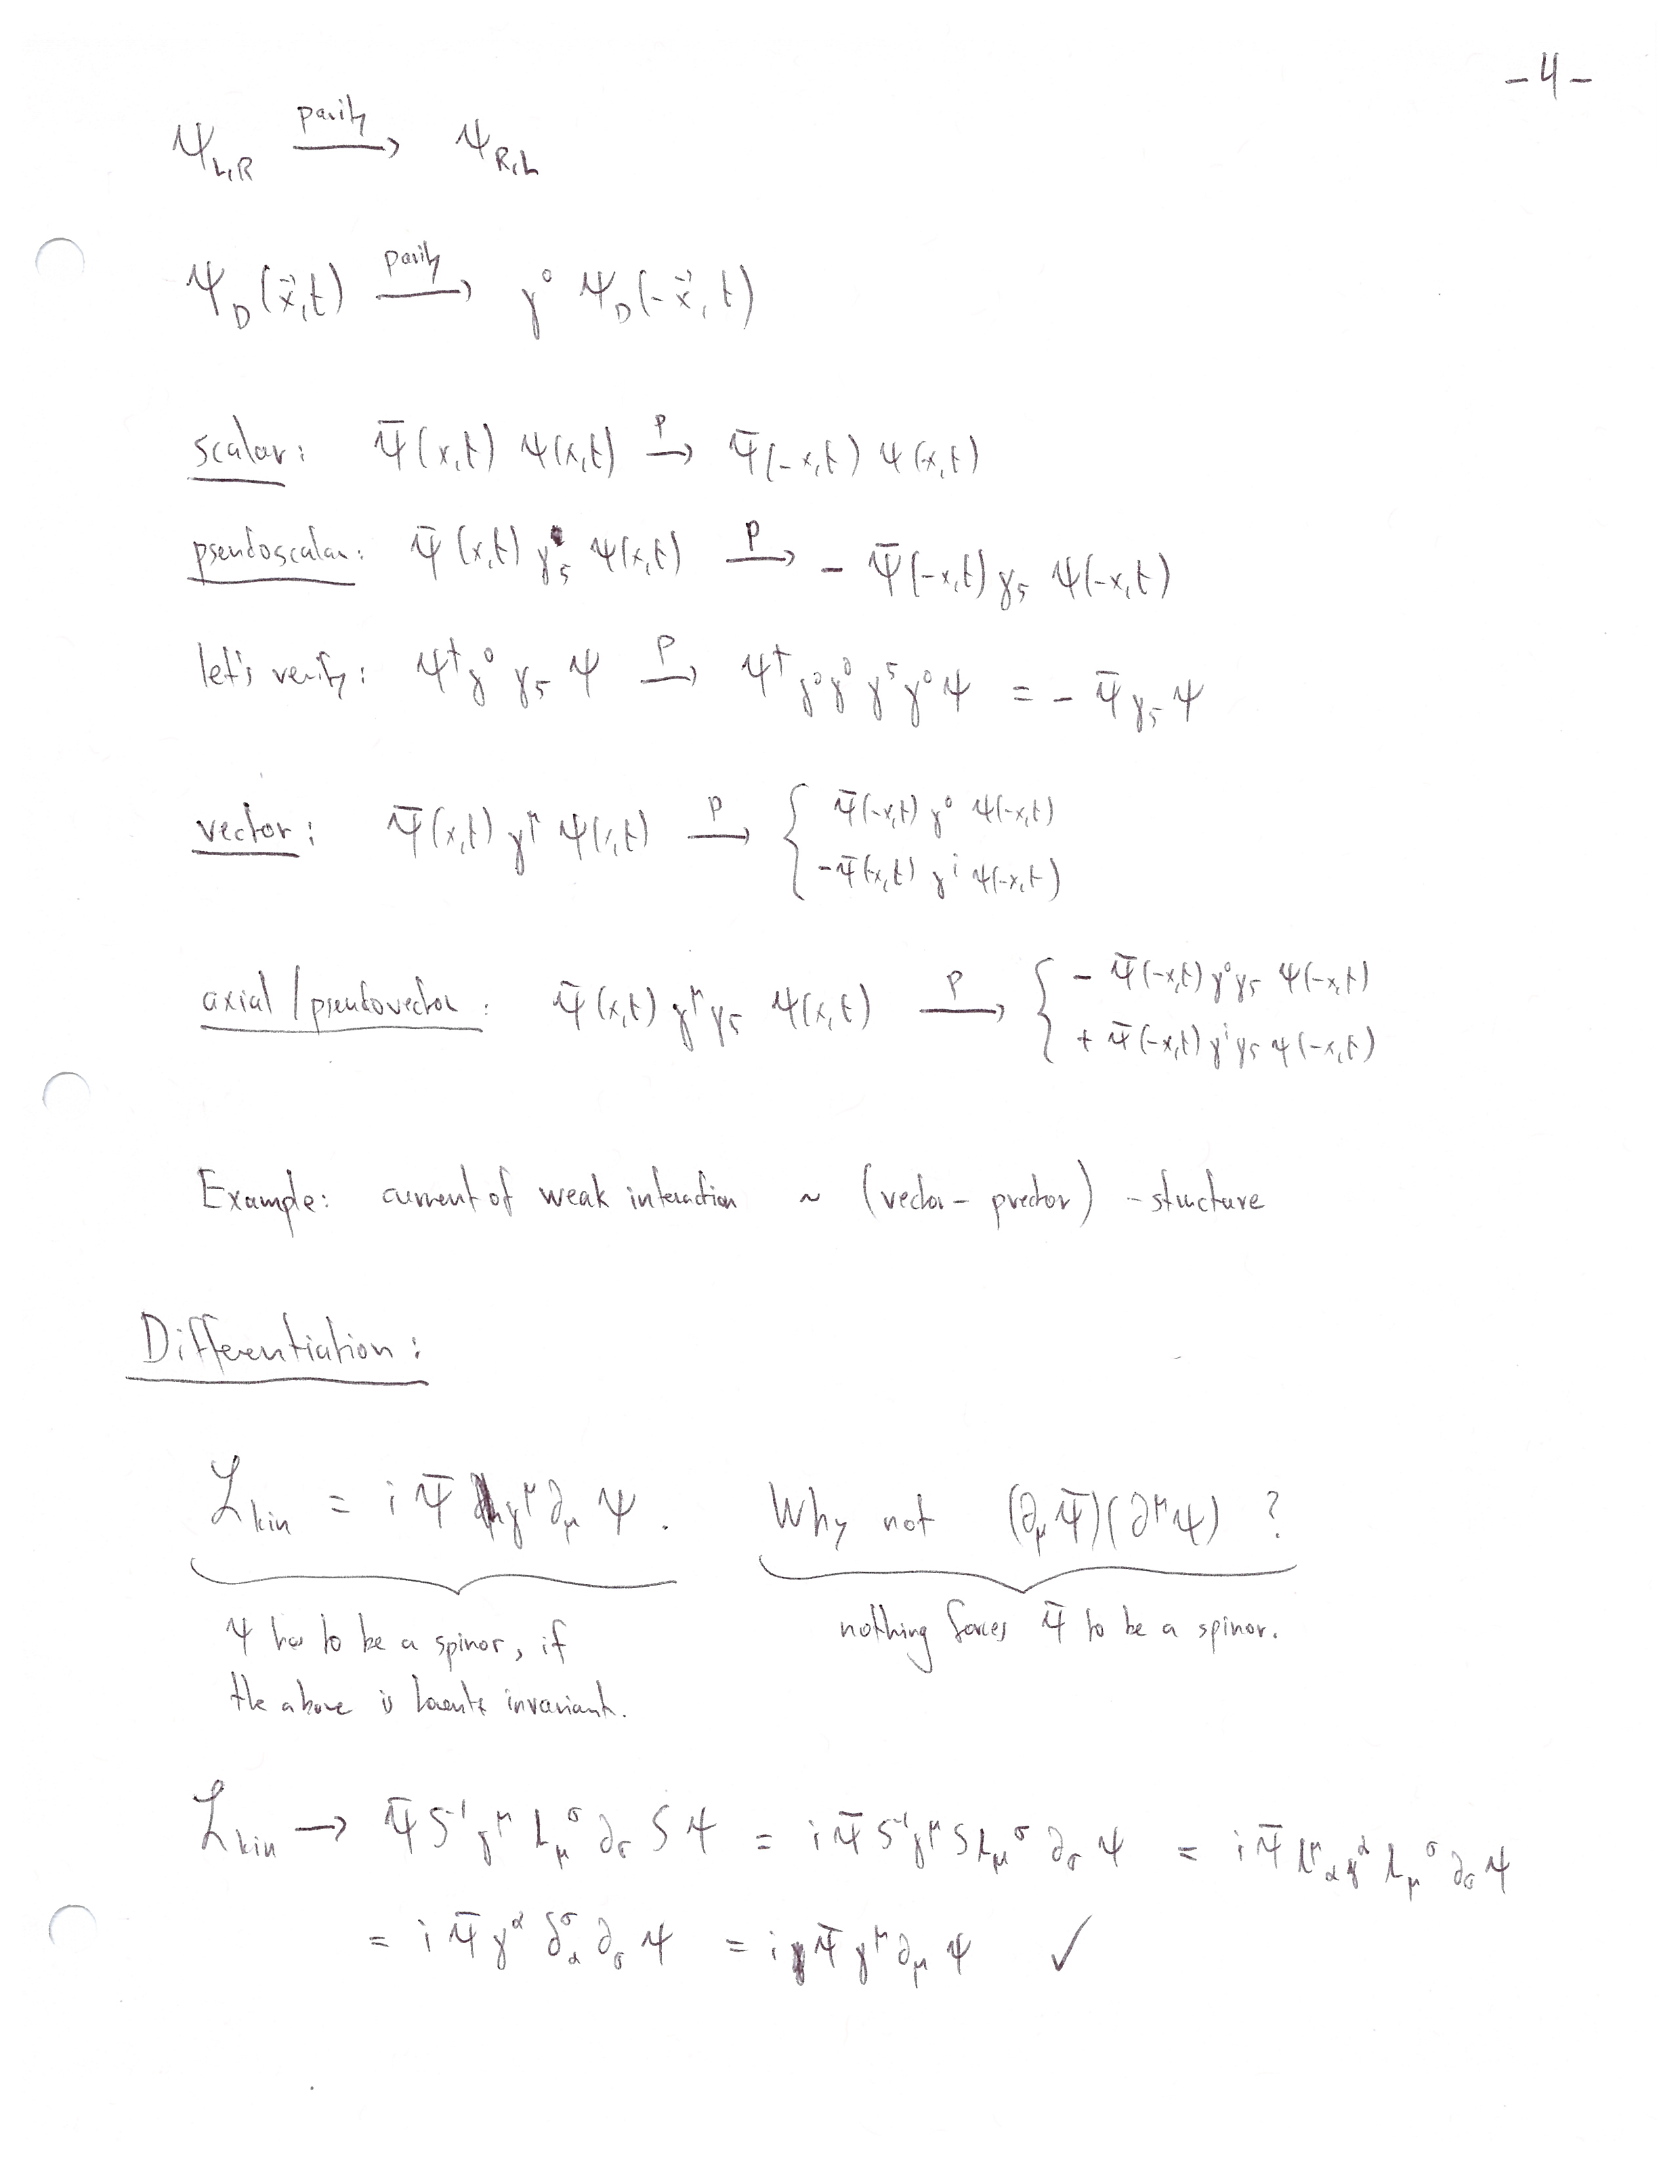 -4-
Ψ_{L,R} —parity→ Ψ_{R,L}
Ψ_D(x⃗,t) —parity→ γ⁰ Ψ_D(-x⃗,t)
scalar: Ψ̄(x,t) Ψ(x,t) —P→ Ψ̄(-x,t) Ψ(-x,t)
pseudoscalar: Ψ̄(x,t) γ₅ Ψ(x,t) —P→ - Ψ̄(-x,t) γ₅ Ψ(-x,t)
let's verify: Ψ†γ⁰ γ₅ Ψ —P→ Ψ† γ⁰γ⁰γ⁵γ⁰Ψ = - Ψ̄ γ₅ Ψ
vector: Ψ̄(x,t) γ^μ Ψ(x,t) —P→ { Ψ̄(-x,t) γ⁰ Ψ(-x,t)
-Ψ̄(-x,t) γ^i Ψ(-x,t)
axial/pseudovector: Ψ̄(x,t) γ^μ γ₅ Ψ(x,t) —P→ { - Ψ̄(-x,t) γ⁰γ₅ Ψ(-x,t)
+ Ψ̄(-x,t) γ^i γ₅ Ψ(-x,t)
Example: current of weak interaction ~ (vector - pvector) - structure
Differentiation:
ℒ_kin = i Ψ̄ γ^μ ∂_μ Ψ. Why not (∂_μ Ψ̄)(∂^μ Ψ) ?
Ψ has to be a spinor, if nothing forces Ψ̄ to be a spinor.
the above is Lorentz invariant.
ℒ_kin → Ψ̄ S⁻¹ γ^μ L_μ^σ ∂_σ S Ψ = i Ψ̄ S⁻¹ γ^μ S L_μ^σ ∂_σ Ψ = i Ψ̄ L^μ_α γ^α L_μ^σ ∂_σ Ψ
= i Ψ̄ γ^α δ^σ_α ∂_σ Ψ = i Ψ̄ γ^μ ∂_μ Ψ ✓